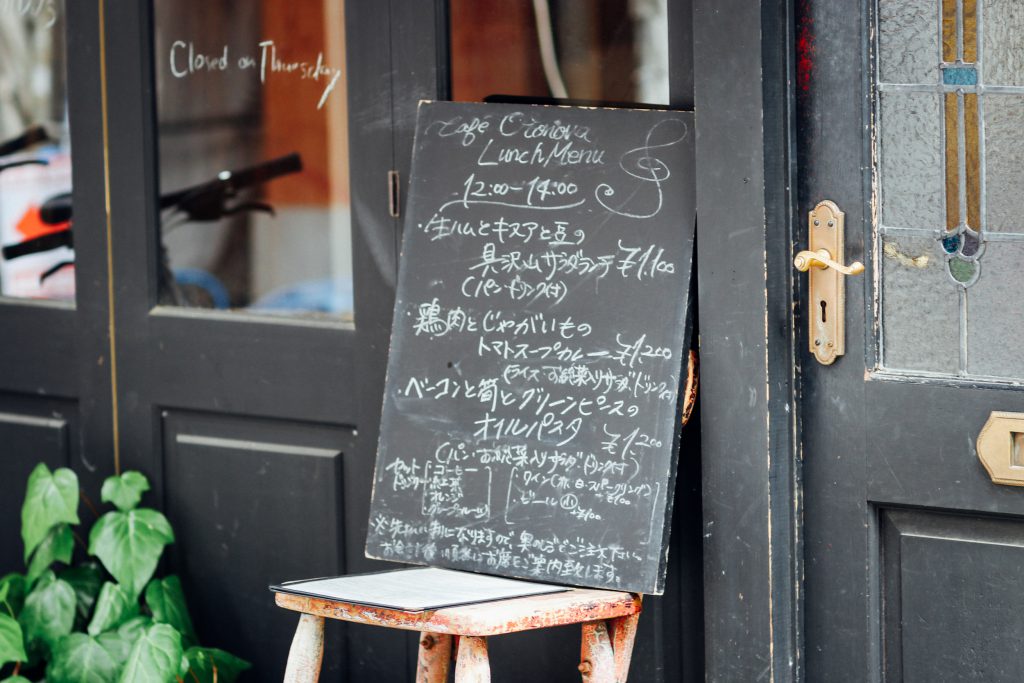 Closed on Thursday
Café Otonova
Lunch Menu
12:00-14:00
・生ハムとキヌアと豆の
具沢山サラダランチ ¥1,100
(パン・ドリンク付)
・鶏肉とじゃがいもの
トマトスープカレー ¥1,200
(ライス・お総菜入りサラダ・ドリンク付)
・ベーコンと筍とグリーンピースの
オイルパスタ ¥1,200
(パン・お総菜入りサラダ・ドリンク付)
セット
ドリンク
コーヒー
紅茶
オレンジ
グレープフルーツ
ワイン(赤・白・スパークリング)
+¥100
・ビール 小
+¥100
※先払い制になりますので、奥のレジでご注文下さい。
お会計後順次お席をご案内致します。